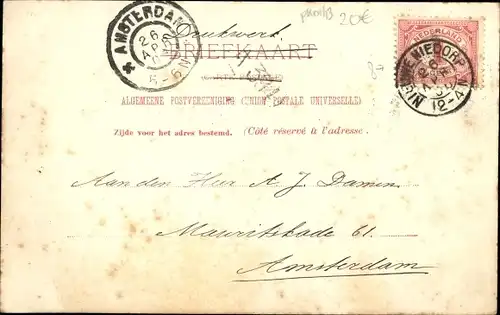 Drukwerk
20€
AMSTERDAM
26
AP
5-6 N
BRIEFKAART
NEDERLAND
NIEDORP
12-4
ALGEMEENE POSTVEREENIGING (UNION POSTALE UNIVERSELLE)
Zijde voor het adres bestemd. (Côté réservé à l'adresse.
Aan den Heer A. J. Damen.
Mauritskade 61.
Amsterdam